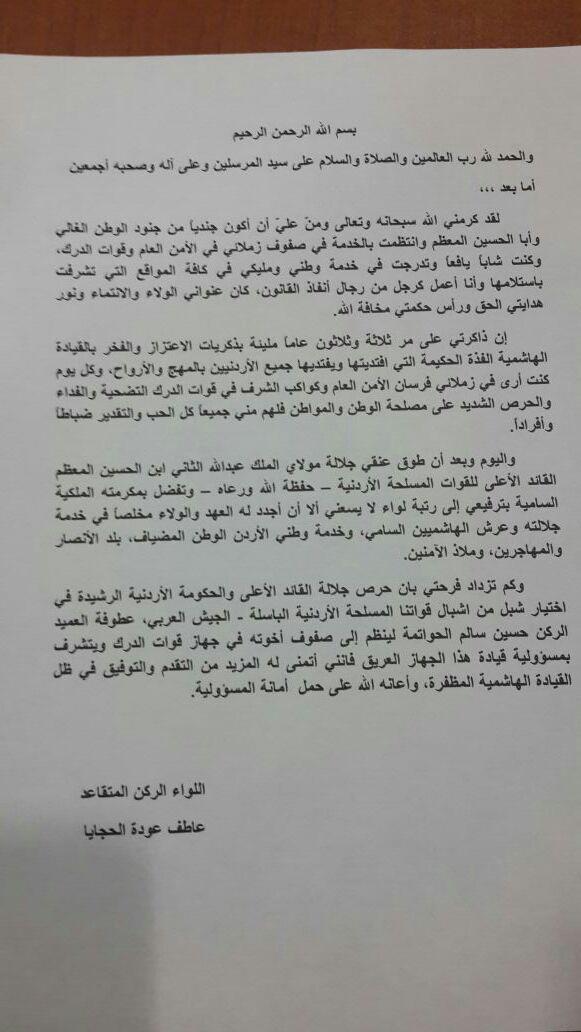 بسم الله الرحمن الرحيم
والحمد لله رب العالمين والصلاة والسلام على سيد المرسلين وعلى آله وصحبه أجمعين
أما بعد ،،،
لقد كرمني الله سبحانه وتعالى ومنّ عليّ أن أكون جندياً من جنود الوطن الغالي
وأبا الحسين المعظم وانتظمت بالخدمة في صفوف زملائي في الأمن العام وقوات الدرك،
وكنت شاباً يافعاً وتدرجت في خدمة وطني ومليكي في كافة المواقع التي تشرفت
باستلامها وأنا أعمل كرجل من رجال أنفاذ القانون، كان عنواني الولاء والانتماء ونور
هدايتي الحق ورأس حكمتي مخافة الله.
إن ذاكرتي على مر ثلاثة وثلاثون عاماً مليئة بذكريات الاعتزاز والفخر بالقيادة
الهاشمية الفذة الحكيمة التي افتديتها ويفتديها جميع الأردنيين بالمهج والأرواح، وكل يوم
كنت أرى في زملائي فرسان الأمن العام وكواكب الشرف في قوات الدرك التضحية والفداء
والحرص الشديد على مصلحة الوطن والمواطن فلهم مني جميعاً كل الحب والتقدير ضباطاً
وأفراداً.
واليوم وبعد أن طوق عنقي جلالة مولاي الملك عبدالله الثاني ابن الحسين المعظم
القائد الأعلى للقوات المسلحة الأردنية – حفظة الله ورعاه – وتفضل بمكرمته الملكية
السامية بترفيعي إلى رتبة لواء لا يسعني ألا أن أجدد له العهد والولاء مخلصاً في خدمة
جلالته وعرش الهاشميين السامي، وخدمة وطني الأردن الوطن المضياف، بلد الأنصار
والمهاجرين، وملاذ الآمنين.
وكم تزداد فرحتي بان حرص جلالة القائد الأعلى والحكومة الأردنية الرشيدة في
اختيار شبل من اشبال قواتنا المسلحة الأردنية الباسلة - الجيش العربي، عطوفة العميد
الركن حسين سالم الحواتمة لينظم إلى صفوف أخوته في جهاز قوات الدرك ويتشرف
بمسؤولية قيادة هذا الجهاز العريق فانني أتمنى له المزيد من التقدم والتوفيق في ظل
القيادة الهاشمية المظفرة، وأعانه الله على حمل أمانة المسؤولية.
اللواء الركن المتقاعد
عاطف عودة الحجايا